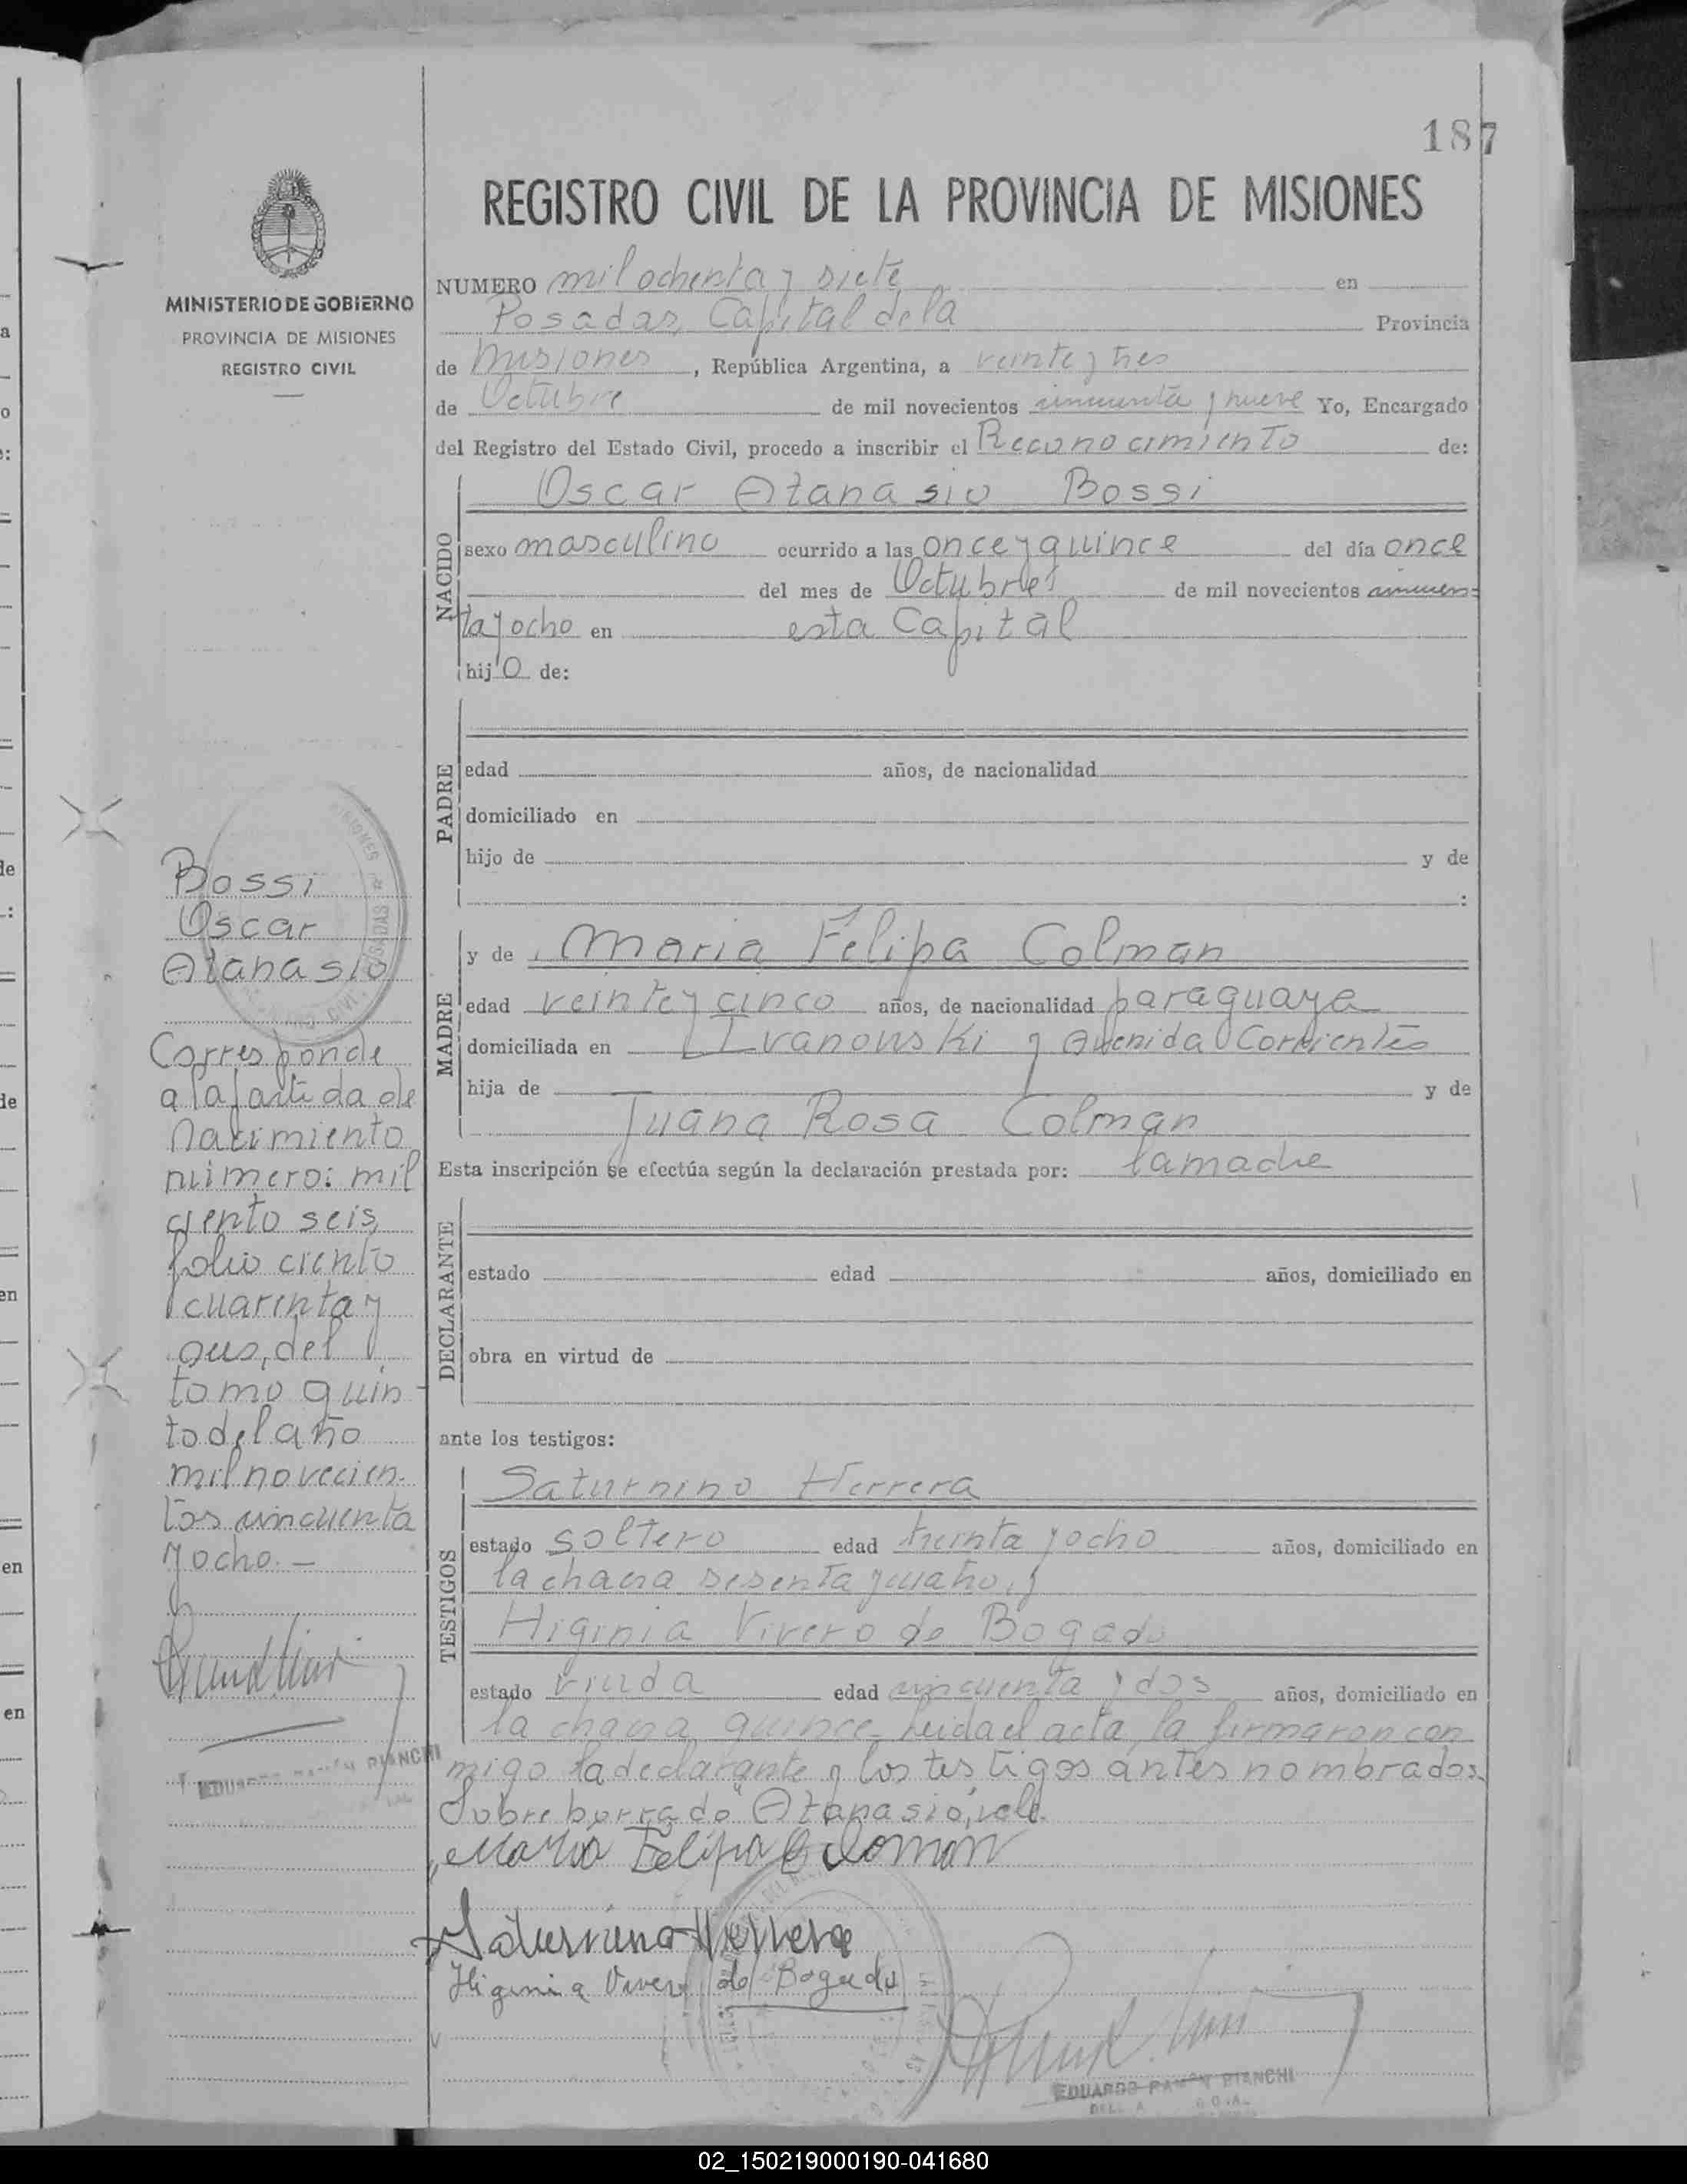 187
REGISTRO CIVIL DE LA PROVINCIA DE MISIONES
MINISTERIO DE GOBIERNO
PROVINCIA DE MISIONES
REGISTRO CIVIL
NUMERO mil ochenta y siete en
Posadas, Capital de la Provincia
de Misiones, República Argentina, a veinte y tres
de Octubre de mil novecientos cincuenta y nueve Yo, Encargado
del Registro del Estado Civil, procedo a inscribir el Reconocimiento de:
NACIDO
Oscar Atanasio Bossi
sexo masculino ocurrido a las once y quince del día once
del mes de Octubre de mil novecientos cincuen-
ta y ocho en esta Capital
hijo de:
PADRE
edad años, de nacionalidad
domiciliado en
hijo de y de
:
MADRE
y de Maria Felipa Colman
edad veinte y cinco años, de nacionalidad paraguaya
domiciliada en Ivanowski y Avenida Corrientes
hija de y de
Juana Rosa Colman
Esta inscripción se efectúa según la declaración prestada por: la madre
DECLARANTE
estado edad años, domiciliado en
obra en virtud de
ante los testigos:
TESTIGOS
Saturnino Herrera
estado soltero edad treinta y ocho años, domiciliado en
la chacra sesenta y cuatro, y
Higinia Vivero de Bogado
estado viuda edad cincuenta y dos años, domiciliado en
la chacra quince. Leida el acta, la firmaron con
migo la declarante y los testigos antes nombrados.
Sobre borrado "Atanasio", vale.
Maria Felipa Coloman
Saturnino Herrera
Higinia Vivero de Bogado
EDUARDO RAMÓN BIANCHI
Bossi
Oscar
Atanasio
Corresponde
a la partida de
nacimiento
número: mil
ciento seis,
folio ciento
cuarenta y
dos, del
tomo quin-
to del año
mil novecien-
tos cincuenta
y ocho.-
EDUARDO RAMÓN BIANCHI
02_150219000190-041680